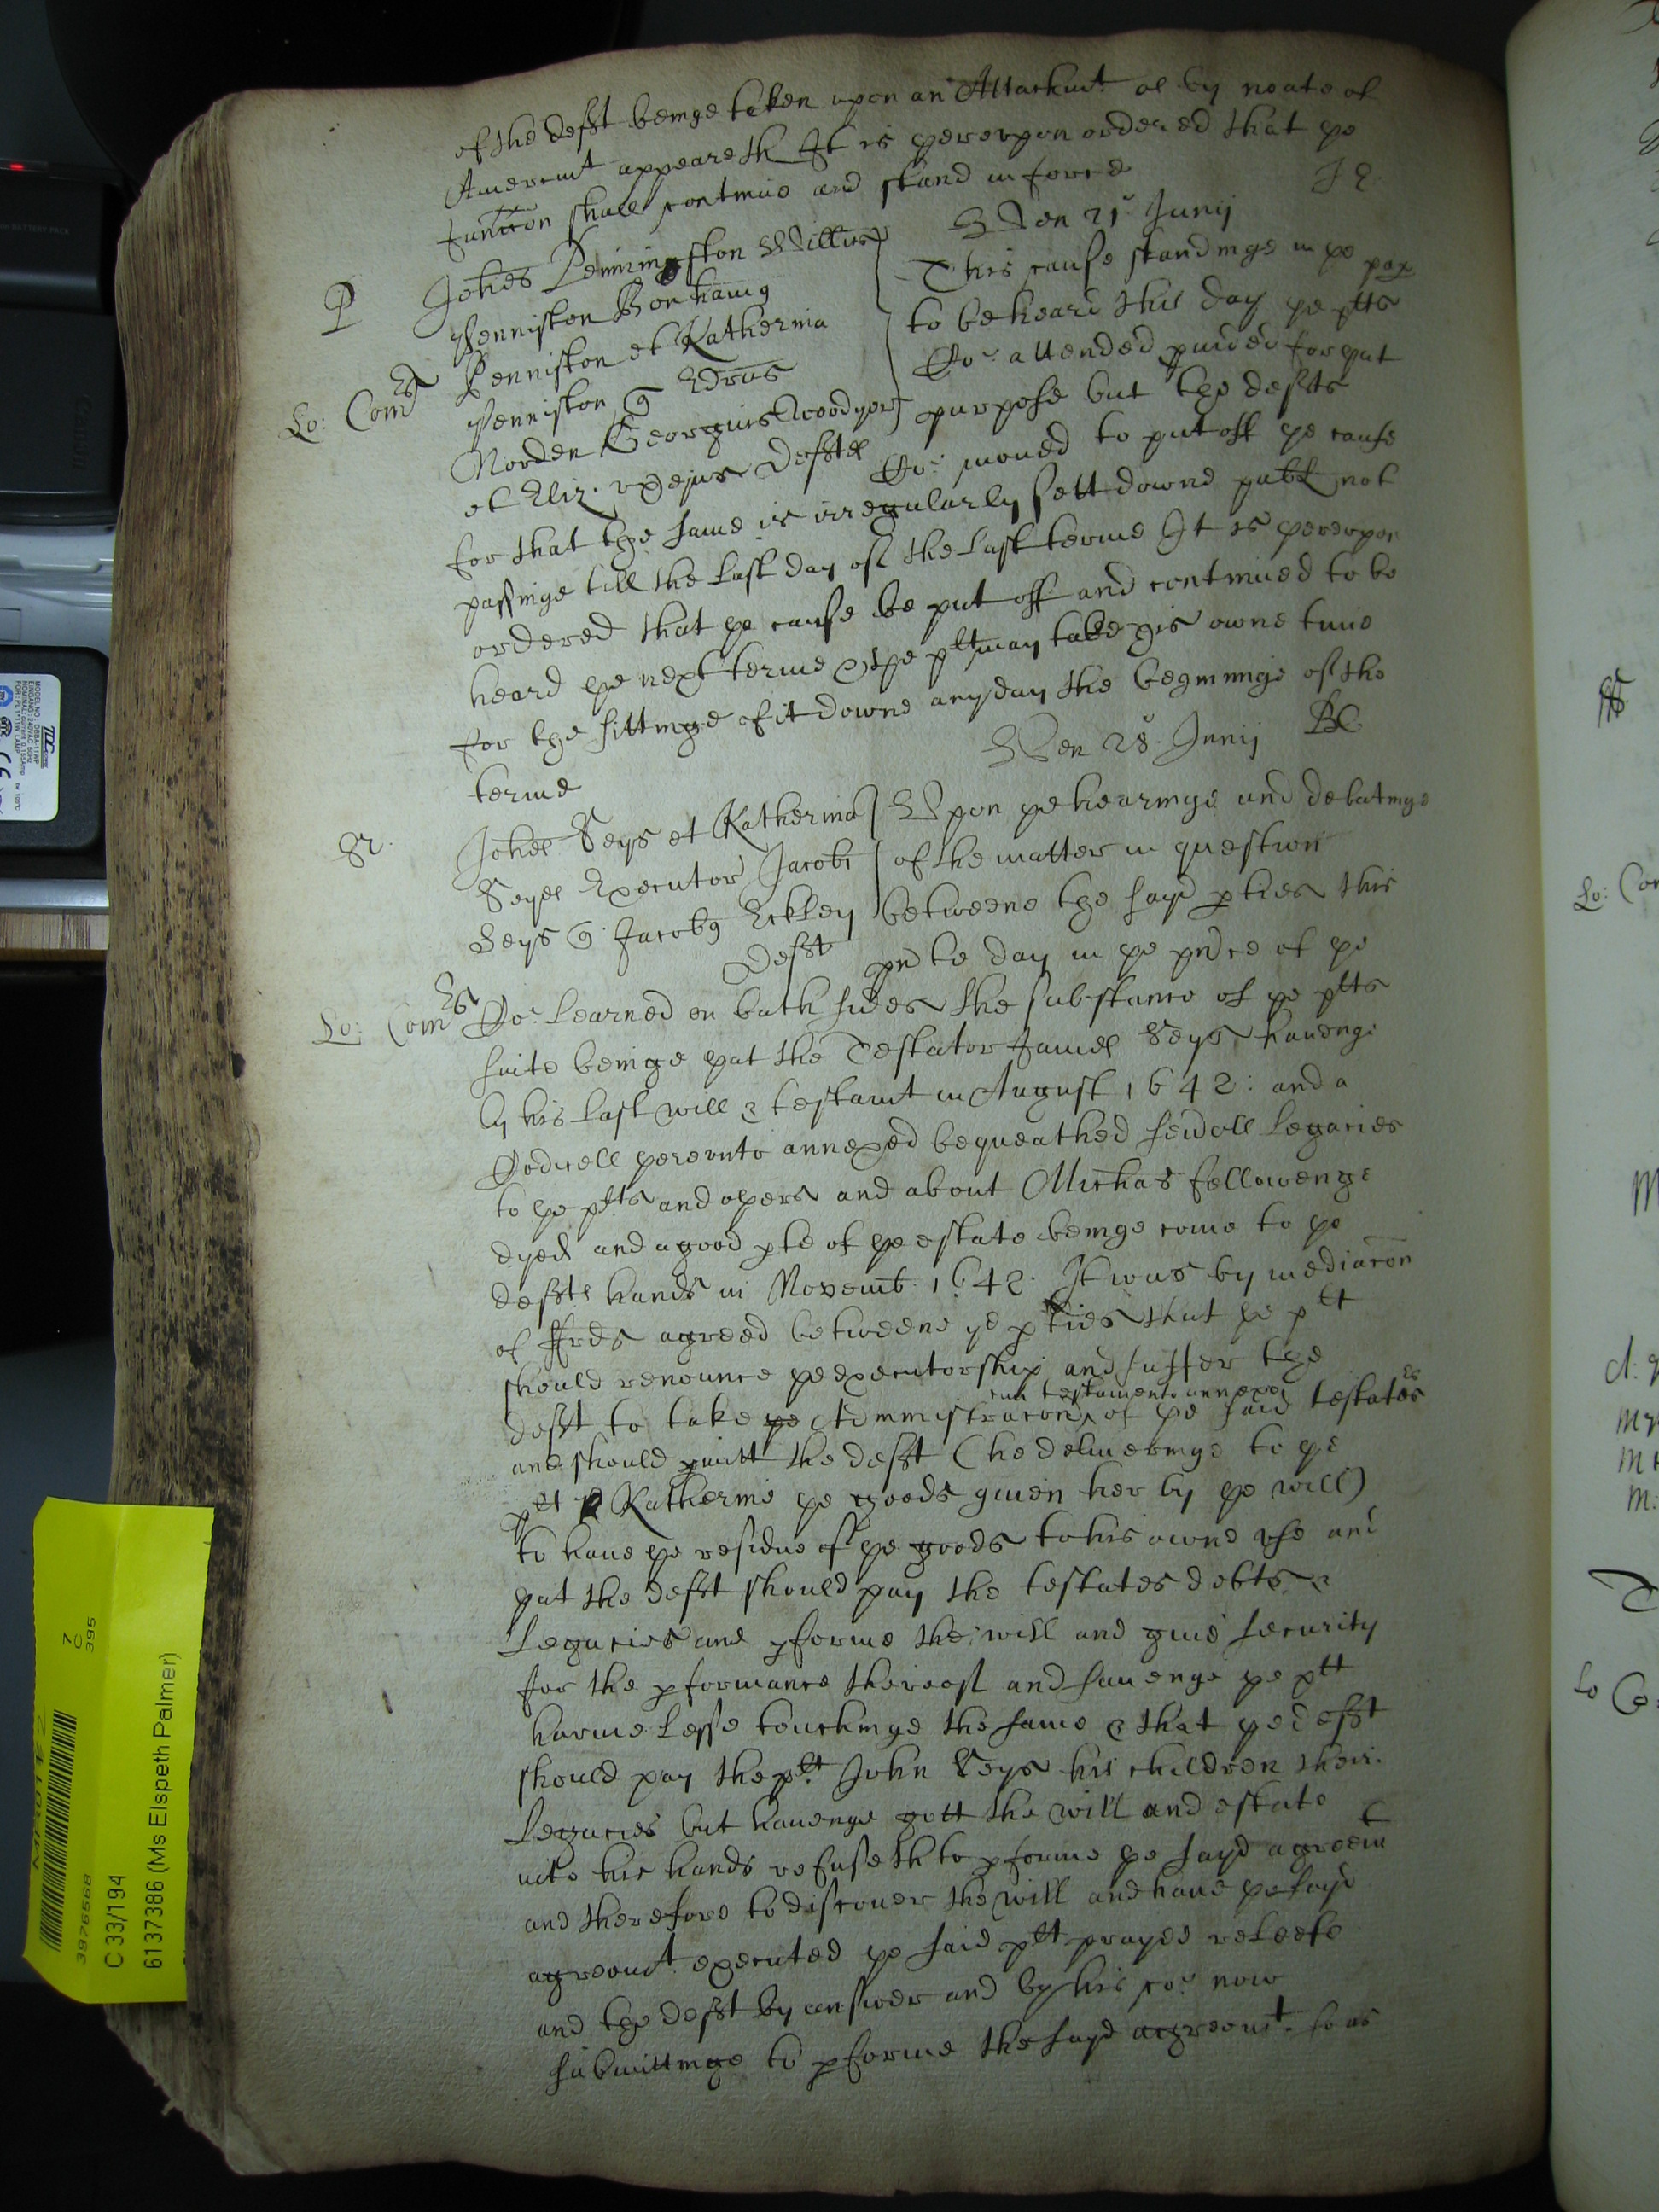 of the defft beinge taken upon an Attachmt as by noate of
Amercmt appeareth It is yereupon ordered that ye
Junccon shall continue and stand in force
J E.
P
Johes Penningston Willus
Penniston Bonhamg
Penniston et Katherina
Penniston 9 Edrus
Norden Georgius Woodyer
et Eliz. ux ejus Defftes
Lo: Com Es
Ven 21° Junij
This cause standinge in ye pap
to be heard this day ye pltts
Co: attended pvided for yat
purpose but the deffts
Co: moved to put off ye cause
for that the same is irregularly sett downe publ not
passinge till the last day of the last terme It is yereupon
ordered that ye cause be put off and continued to be
heard ye next terme & ye pltt may take his owne time
for the sittinge of it downe any day the beginninge of the
terme
Ven 28° Junij
Johes Seys et Katherina
Seyes Executor Jacobi
Seys 9 Jacobg Eckley
Defft
Lo: Com Es
Upon ye hearinge and debatinge
of the matter in question
betweene the sayd pties this
pnte day in ye pnce of ye
Co: learned on both sides the substance of ye pltts
suite beinge yat the Testator James Seys havenge
by his last will & testamt in August 1642: and a
Codicell yereunto annexed bequeathed sevall legacies
to ye pltts and oyers and about Michas followenge
dyed and a good pte of ye estate beinge come to ye
deffts hands in Novemb. 1642. It was by mediacon
of ffrds agreed betweene ye pties that ye pltt
should renounce ye executorship and suffer the
defft to take ye Administracon cum testamento annexo of ye said testates Es
and should pmitt the defft (he deliveringe to ye
pltt Katherine ye goods given her by ye will)
to have ye residue of ye goods to his owne use and
yat the defft should pay the testates debts &
Legacies and pforme the will and give security
for the pformance thereof and savenge ye pltt
harmelesse touchinge the same & that ye defft
should pay the pltt John Seys his children their
Legacies but havenge gott the will and estate
into his hands refuseth to pforme ye sayd agreemt
and therefore to discover the will and have ye sayd
agreemt executed ye said pltt prayed releefe
and the defft by answer and by his co: now
submittinge to pforme the sayd agreemt so as
Lo: Co
MODEL NO
C 33/194
6137386 (Ms Elspeth Palmer)
3976568
7
C
395